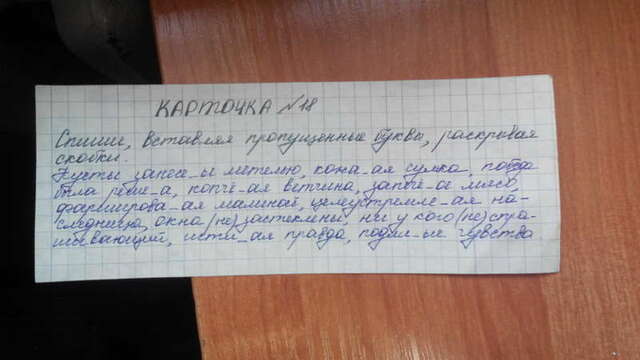 КАРТОЧКА №18
Спиши, вставляя пропущенные буквы, раскрывая
скобки.
Кусты занесе_ы метелью, кожа_ая сумка, победа
была реше_а, копчё_ая ветчина, запечё_ое мясо,
фарширова_ая малиной, целеустремлё_ая на-
следница, окна (не)застеклены, ни у кого (не)спра-
шивающий, исти_ая правда, подли_ые чувства